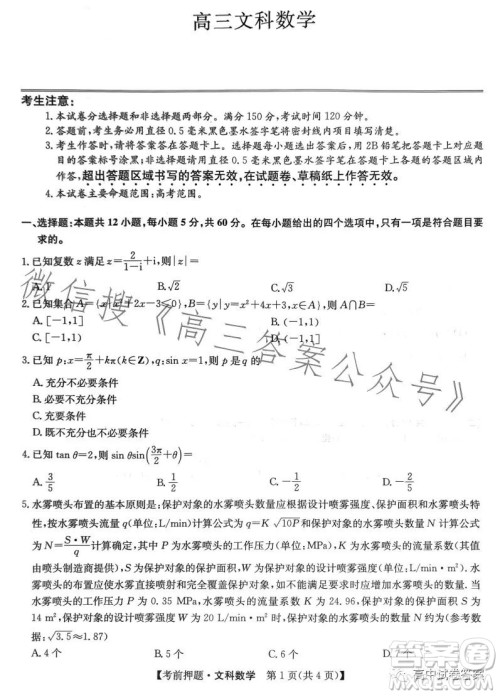 高三文科数学
考生注意:
1.本试卷分选择题和非选择题两部分。满分150分,考试时间120分钟。
2.答题前,考生务必用直径0.5毫米黑色墨水签字笔将密封线内项目填写清楚。
3.考生作答时,请将答案答在答题卡上。选择题每小题选出答案后,用2B铅笔把答题卡上对应题目的答案标号涂黑;非选择题请用直径0.5毫米黑色墨水签字笔在答题卡上各题的答题区域内作答,超出答题区域书写的答案无效,在试题卷、草稿纸上作答无效。
4.本试卷主要命题范围:高考范围。
一、选择题:本题共12小题,每小题5分,共60分。在每小题给出的四个选项中,只有一项是符合题目要求的。
1.已知复数z满足z=2/(1-i)+i,则|z|=
A.1 B.√2 C.√3 D.√5
2.已知集合A={x|x²+2x-3≤0},B={y|y=x²+4x+3},则A∩B=
A.[-1,1] B.(-1,1]
C.[-1,1) D.(-1,1)
3.已知p:x=π/2+kπ(k∈Z),q:sin x=1,则p是q的
A.充分不必要条件
B.必要不充分条件
C.充要条件
D.既不充分也不必要条件
4.已知tan θ=2,则sin θsin(3π/2+θ)=
A.3/5 B.1/2 C.-1/2 D.-2/5
5.水雾喷头布置的基本原则是:保护对象的水雾喷头数量应根据设计喷雾强度、保护面积和水雾喷头特性,按水雾喷头流量q(单位:L/min)计算公式为q=K√10P和保护对象的水雾喷头数量N计算公式为N=S·W/q计算确定,其中P为水雾喷头的工作压力(单位:MPa),K为水雾喷头的流量系数(其值由喷头制造商提供),S为保护对象的保护面积,W为保护对象的设计喷雾强度(单位:L/min·m²).水雾喷头的工作压力P为0.35 MPa,水雾喷头的流量系数K为24.96,保护对象的保护面积S为14 m²,保护对象的设计喷雾强度W为20 L/min·m²时,保护对象的水雾喷头的数量N约为(参考数据:√3.5≈1.87)
A.4个 B.5个 C.6个 D.7个
【考前押题·文科数学 第1页(共4页)】
微信搜《高三答案公众号》
高中试卷答案